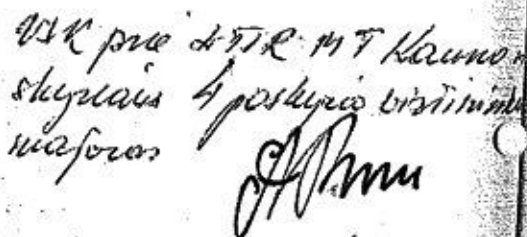 VSK prie LTSR MT Kauno
skyriaus 4 poskyrio viršininkas
majoras